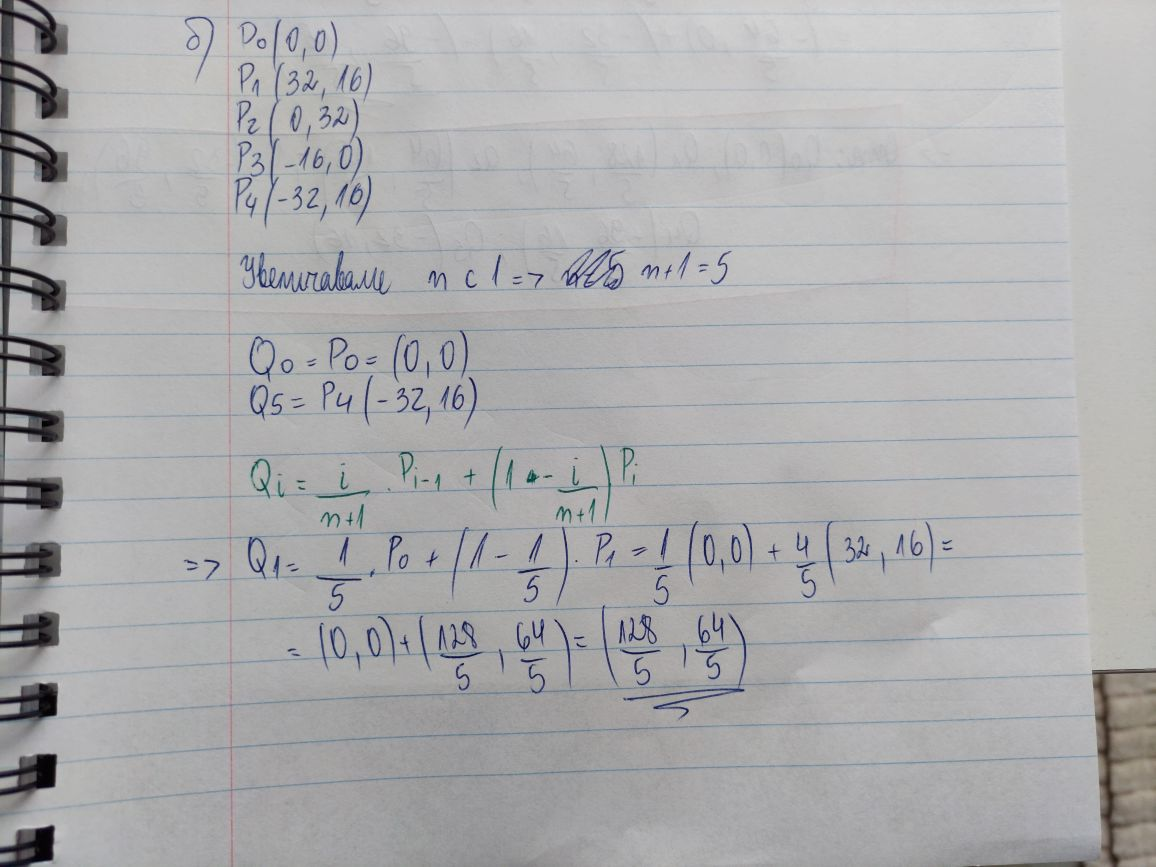 б) P₀(0,0)
P₁(32,16)
P₂(0,32)
P₃(-16,0)
P₄(-32,16)
Увеличаваме n с 1 => n+1=5
Q₀ = P₀ = (0,0)
Q₅ = P₄(-32,16)
Qᵢ = i/(n+1) . Pᵢ₋₁ + (1 - i/(n+1)) Pᵢ
=> Q₁ = 1/5 . P₀ + (1 - 1/5) . P₁ = 1/5 (0,0) + 4/5 (32,16) =
= (0,0) + (128/5, 64/5) = (128/5, 64/5)